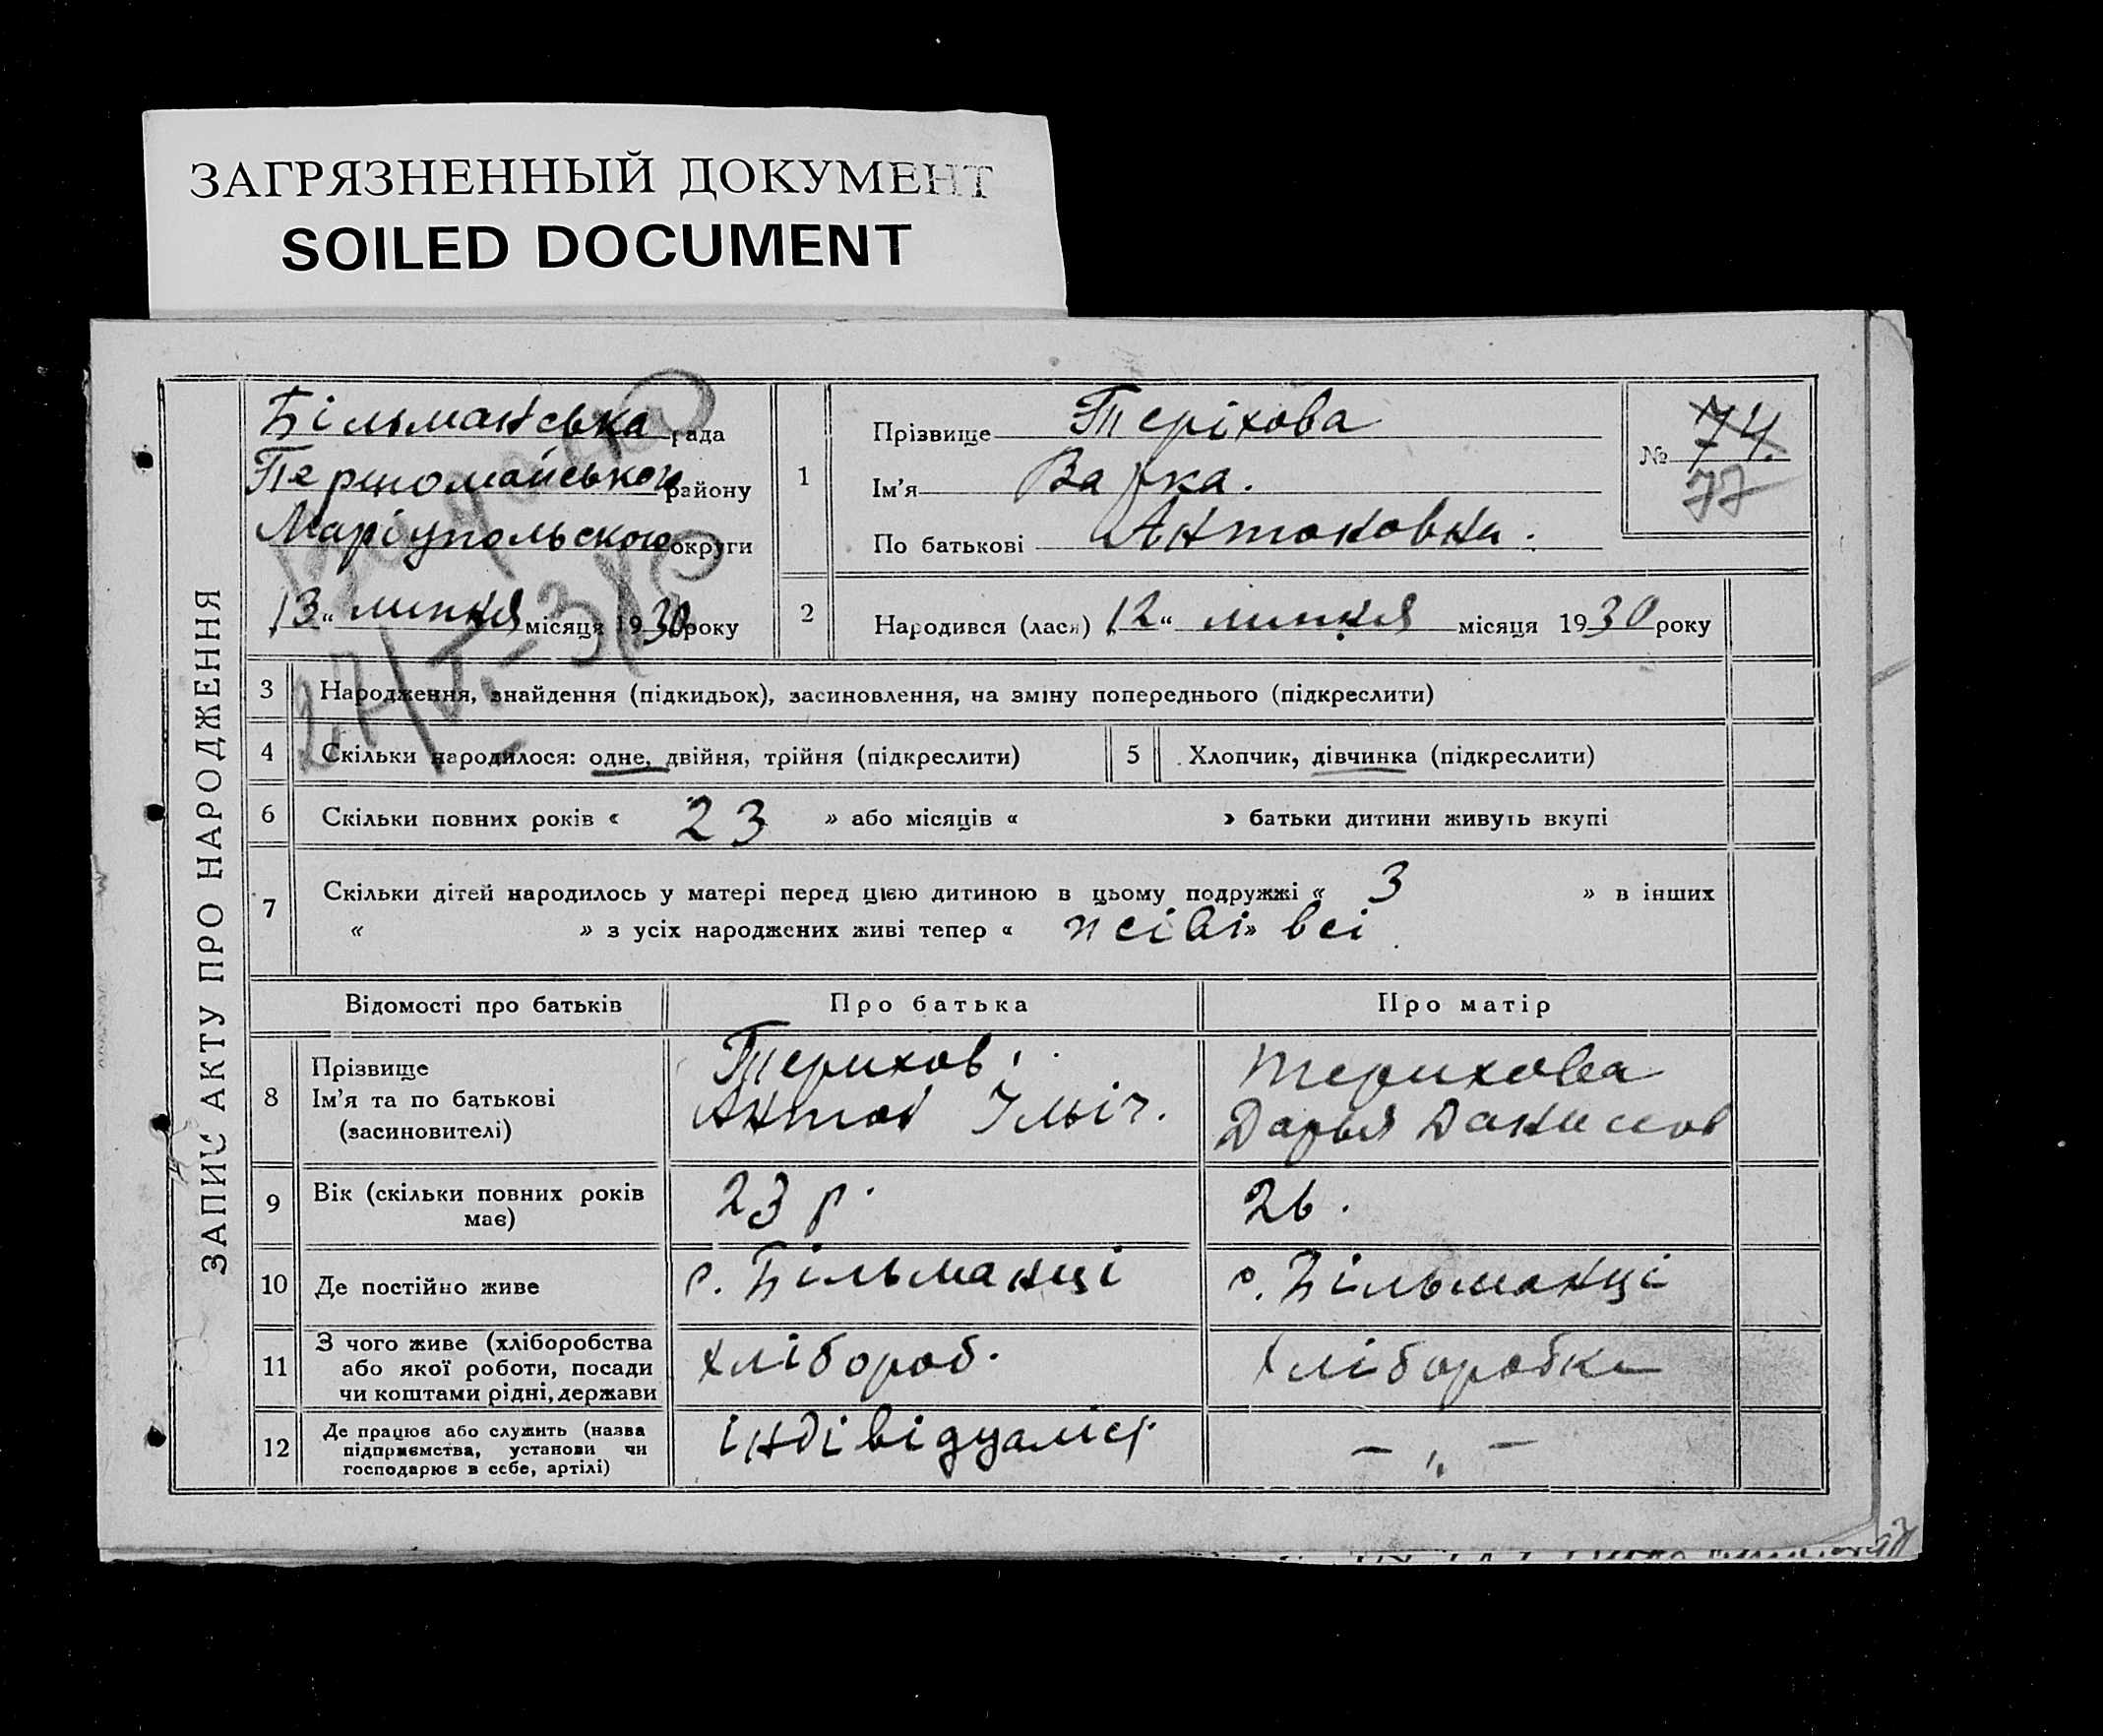 ЗАГРЯЗНЕННЫЙ ДОКУМЕНТ
SOILED DOCUMENT
ЗАПИС АКТУ ПРО НАРОДЖЕННЯ
Більманська рада
Першомайськои району
Маріупольскою округи
„13“ липня місяця 1930 року
1
Прізвище Теріхова
Ім'я Варка.
По батькові Антоновна.
№ 74.
77
2
Народився (лася) „12“ липня місяця 1930 року
3 Народження, знайдення (підкидьок), засиновлення, на зміну попереднього (підкреслити)
4 Скільки народилося: одне, двійня, трійня (підкреслити)
5 Хлопчик, дівчинка (підкреслити)
6 Скільки повних років « 23 » або місяців « » батьки дитини живуть вкупі
7 Скільки дітей народилось у матері перед цією дитиною в цьому подружжі « 3 » в інших
« » з усіх народжених живі тепер « живі» всі
Відомості про батьків Про батька Про матір
8
Прізвище
Ім'я та по батькові
(засиновителі)
Терихов
Антон Ільіч.
Терихова
Дарья Данилов
9 Вік (скільки повних років
має)
23 р.
26.
10 Де постійно живе
с. Більманці
с. Більманці
11
З чого живе (хліборобства
або якої роботи, посади
чи коштами рідні, держави
хлібороб.
хліборобка
12
Де працює або служить (назва
підприємства, установи чи
господарює в себе, артілі)
індівідуаліст
– „ –